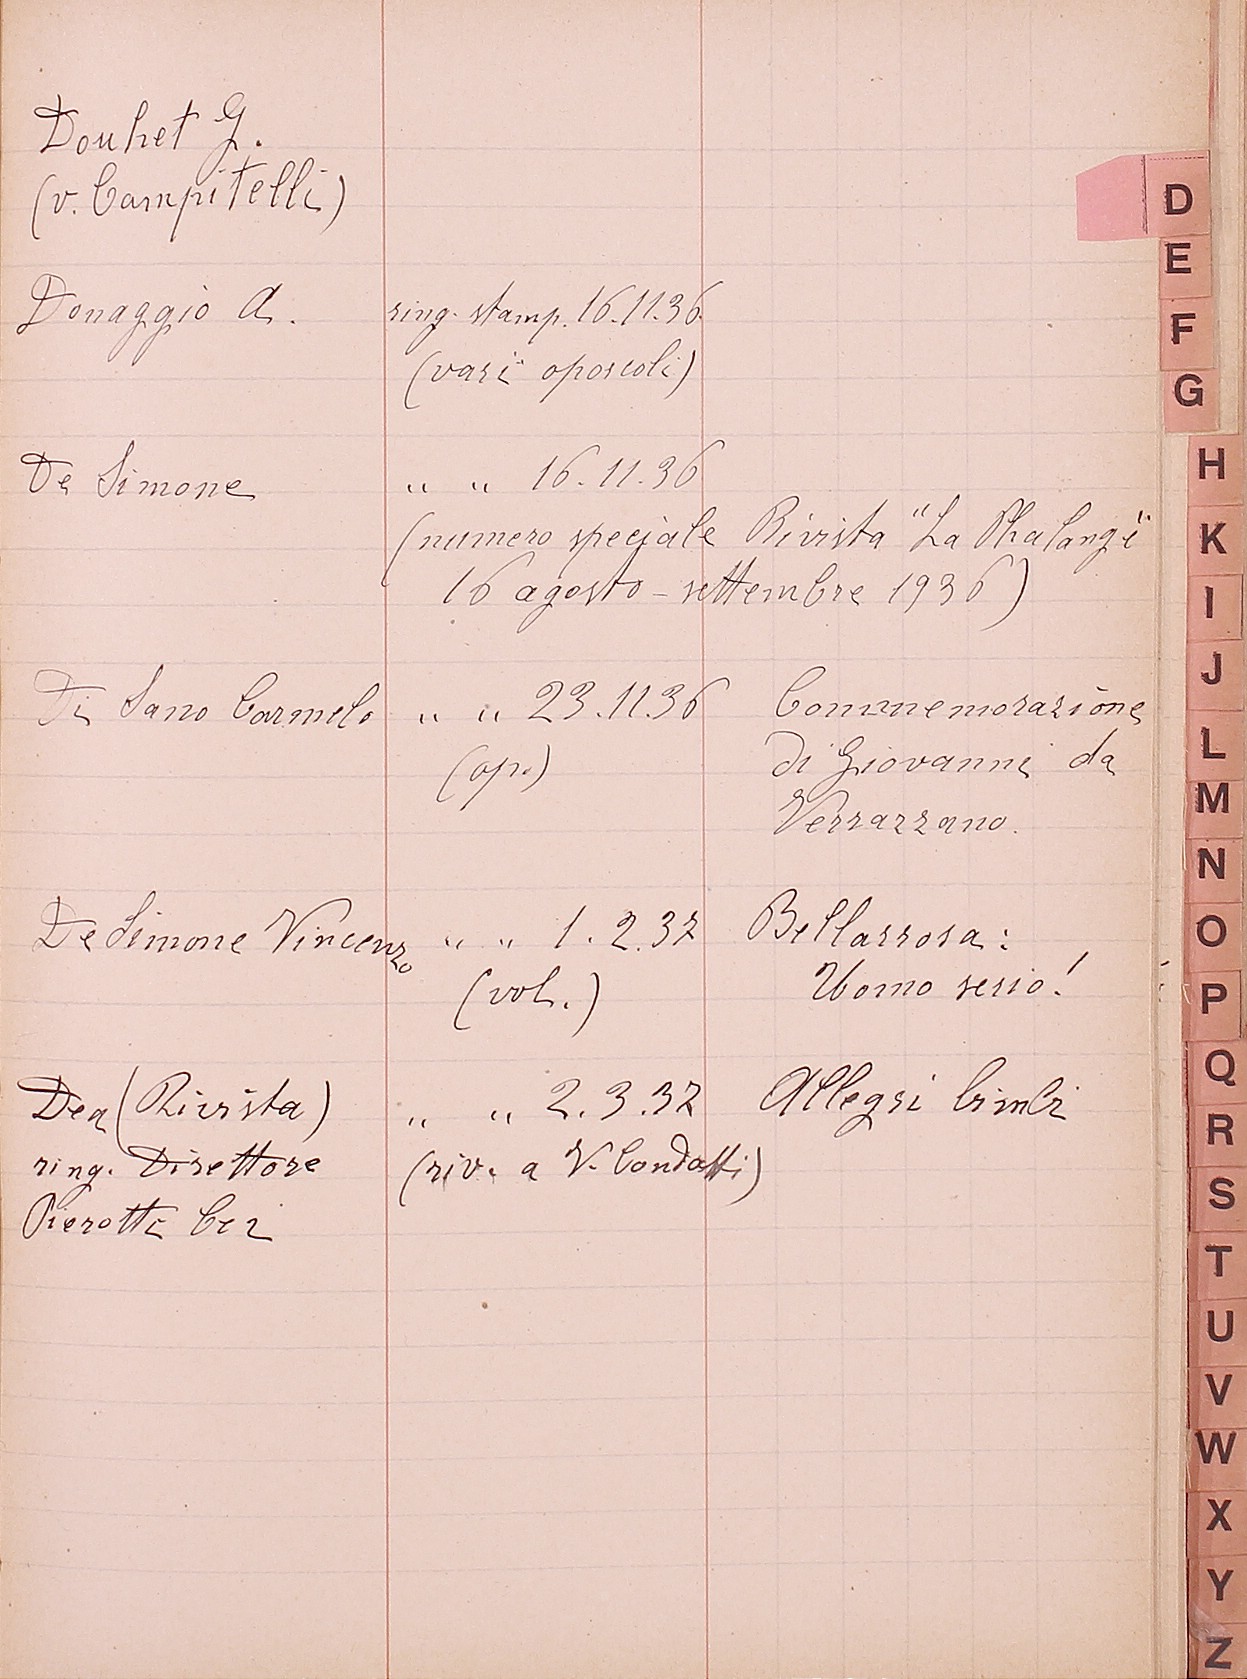 Douhet G.
(v. Campitelli)
Donaggio A. ring. stamp. 16.11.36
(varii oposcoli)
De Simone " " 16.11.36
(numero speciale Rivista "La Phalange"
16 agosto - settembre 1936)
Di Sano Carmelo " " 23.11.36 Commemorazione
(op.) di Giovanni da
Verrazzano.
De Simone Vincenzo " " 1.2.37 Bellarrosa:
(vol.) Uomo serio!
Dea (Rivista) " " 2.3.37 Allegri bimbi
ring. Direttore (riv. a V. Condotti)
Pierotti Cei
D
E
F
G
H
K
I
J
L
M
N
O
P
Q
R
S
T
U
V
W
X
Y
Z